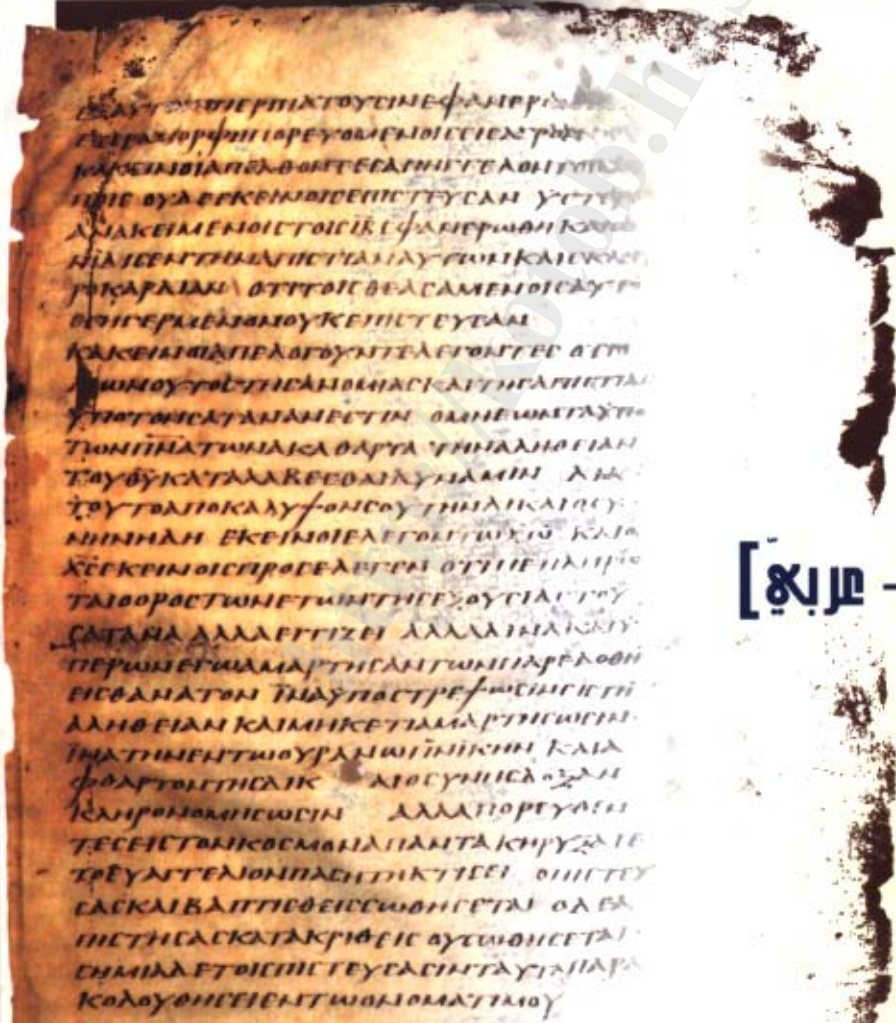 ΕΞΑΥΤΩΝΠΕΡΙΠΑΤΟΥΣΙΝΕΦΑΝΕΡΩ
ΕΤΕΡΑΜΟΡΦΗΠΟΡΕΥΟΜΕΝΟΙΣΕΙΣΑΓΡΟΝ
ΚΑΚΕΙΝΟΙΑΠΕΛΘΟΝΤΕΣΑΠΗΓΓΕΛΟΝΤΟΙΣ
ΠΟΙΣ ΟΥΔΕΕΚΕΙΝΟΙΣΕΠΙΣΤΕΥΣΑΝ ΥΣΤΕΡ
ΑΝΑΚΕΙΜΕΝΟΙΣΤΟΙΣΙΑΕΦΑΝΕΡΩΘΗΚΑΙΩ
ΝΙΔΙΣΕΝΤΗΝΑΠΙΣΤΙΑΝΑΥΤΩΝΚΑΙΣΚΛΗ
ΡΟΚΑΡΔΙΑΝ ΟΤΙΤΟΙΣΘΕΑΣΑΜΕΝΟΙΣΑΥΤΟ
ΕΓΗΓΕΡΜΕΝΟΝΟΥΚΕΠΙΣΤΕΥΣΑΝ
ΚΑΚΕΙΝΟΙΑΠΕΛΟΓΟΥΝΤΕΛΕΓΟΝΤΕΣ ΟΤΙΟ
ΑΙΩΝΟΥΤΟΣΤΗΣΑΝΟΜΙΑΣΚΑΙΤΗΣΑΠΙΣΤΙΑΣ
ΥΠΟΤΟΝΣΑΤΑΝΑΝΕΣΤΙΝ ΟΜΗΕΩΝΤΑΥΠΟ
ΤΩΝΠΝΑΤΩΝΑΚΑΘΑΡΤΑ ΤΗΝΑΛΗΘΕΙΑΝ
ΤΟΥΘΥΚΑΤΑΛΑΒΕΣΘΑΙΔΥΝΑΜΙΝ ΔΙΑ
ΤΟΥΤΟΑΠΟΚΑΛΥΨΟΝΣΟΥΤΗΝΔΙΚΑΙΟΣΥ
ΝΗΝΗΔΗ ΕΚΕΙΝΟΙΕΛΕΓΟΝΤΩΧΩ ΚΑΙΟ
ΧΣΕΚΕΙΝΟΙΣΠΡΟΣΕΛΕΓΕΝ ΟΤΙΠΕΠΛΗΡΩ
ΤΑΙΟΟΡΟΣΤΩΝΕΤΩΝΤΗΣΕΞΟΥΣΙΑΣΤΟΥ
ΣΑΤΑΝΑ ΑΛΛΑΕΓΓΙΖΕΙ ΑΛΛΑΔΙΝΑΚΑΙΥ
ΠΕΡΩΝΕΓΩΑΜΑΡΤΗΣΑΝΤΩΝΠΑΡΕΔΟΘΗ
ΕΙΣΘΑΝΑΤΟΝ ΙΝΑΥΠΟΣΤΡΕΨΩΣΙΝΕΙΣΤΗ
ΑΛΗΘΕΙΑΝ ΚΑΙΜΗΚΕΤΙΑΜΑΡΤΗΣΩΣΙΝ
ΙΝΑΤΗΝΕΝΤΩΟΥΡΑΝΩΠΝΙΚΗΝ ΚΑΙΑ
ΦΘΑΡΤΟΝΤΗΣΔΙΚ ΑΙΟΣΥΝΗΣΔΟΞΑΝ
ΚΛΗΡΟΝΟΜΗΣΩΣΙΝ ΑΛΛΑΠΟΡΕΥΘΕΝ
ΤΕΣΕΙΣΤΟΝΚΟΣΜΟΝΑΠΑΝΤΑ ΚΗΡΥΞΑΤΕ
ΤΟΕΥΑΓΓΕΛΙΟΝΠΑΣΗΤΗΚΤΙΣΕΙ ΟΠΙΣΤΕΥ
ΣΑΣΚΑΙΒΑΠΤΙΣΘΕΙΣΣΩΘΗΣΕΤΑΙ ΟΔΕΑ
ΠΙΣΤΗΣΑΣΚΑΤΑΚΡΙΘΕΙΣ ΟΥΣΩΘΗΣΕΤΑΙ
ΣΗΜΙΑΔΕΤΟΙΣΠΙΣΤΕΥΣΑΣΙΝΤΑΥΤΑΠΑΡΑ
ΚΟΛΟΥΘΗΣΕΙΕΝΤΩΟΝΟΜΑΤΙΜΟΥ
عربي]